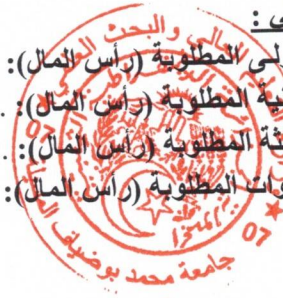 ى :
لى المطلوبة (رأس المال):
نية المطلوبة (رأس المال): .
ثة المطلوبة (رأس المال): .
وات المطلوبة (رأس المال):
العالي والبحث
07
جامعة محمد بوضياف